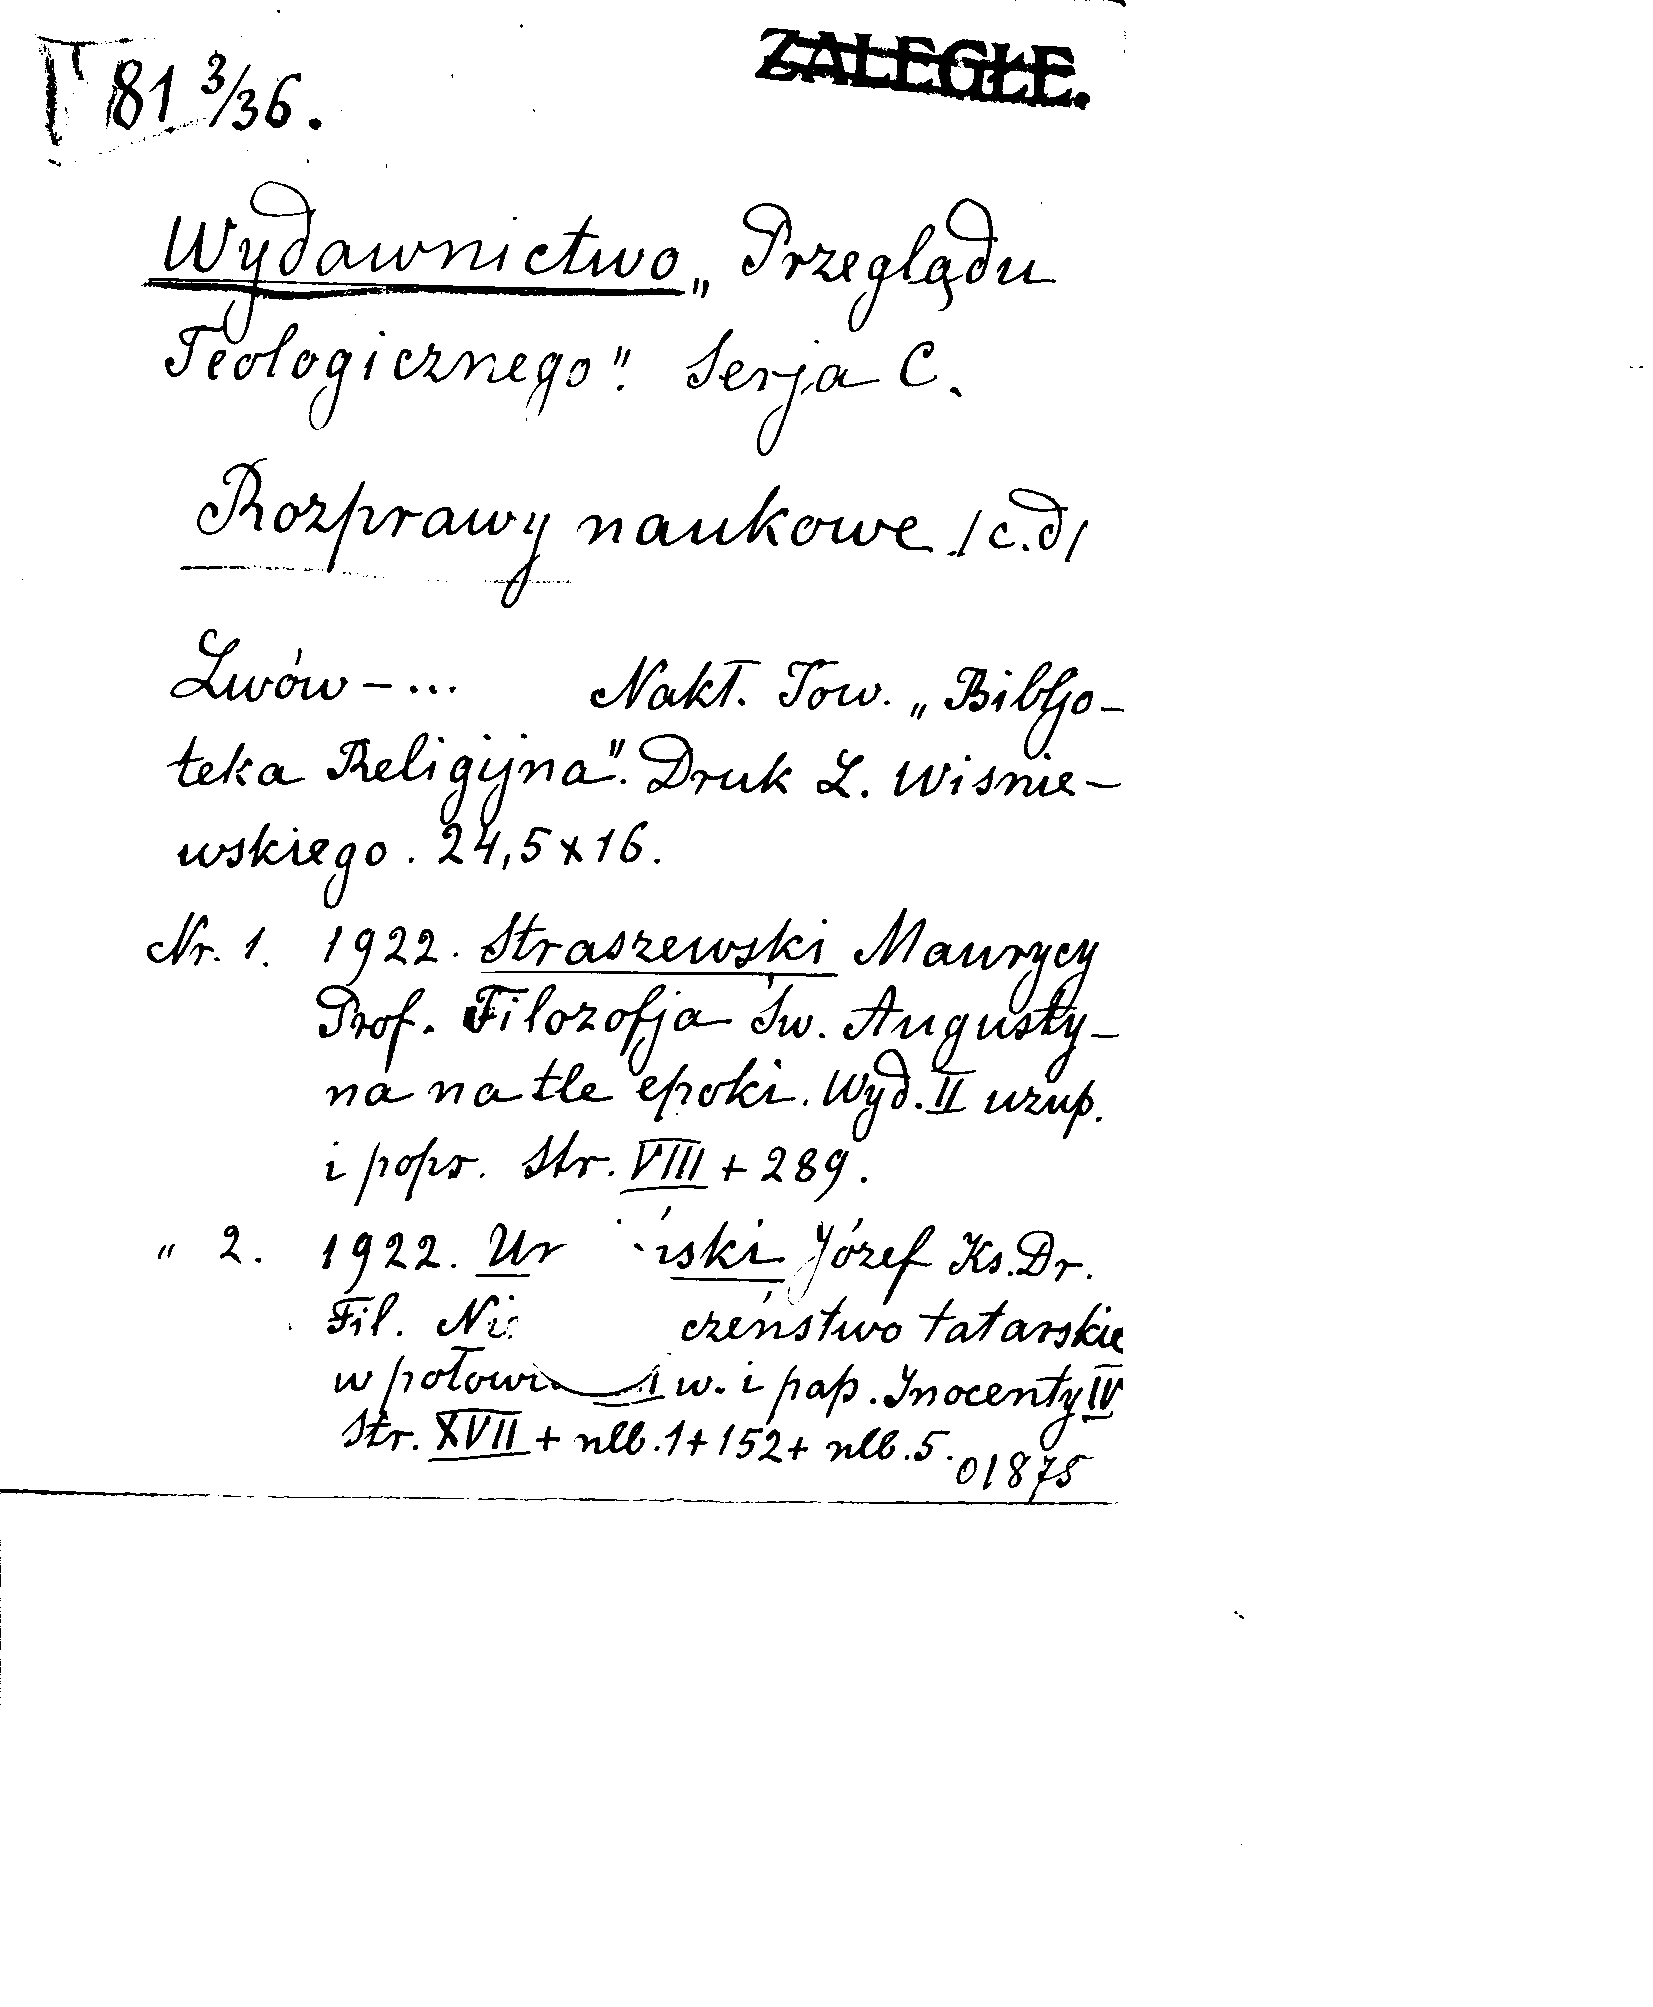 81 3/36.
ZALEGŁE.
Wydawnictwo „Przeglądu
Teologicznego". Serja C.
Rozprawy naukowe /c.d/
Lwów – ... Nakł. Tow. „Bibljo-
teka Religijna". Druk L. Wiśnie-
wskiego. 24,5 x 16.
Nr. 1. 1922. Straszewski Maurycy
Prof. Filozofja Św. Augusty-
na na tle epoki. Wyd. II uzup.
i popr. Str. VIII + 289.
„ 2. 1922. Józef Ks. Dr.
Fil. tatarskie
w w. i pap. Inocenty IV
Str. XVII + nlb. 1 + 152 + nlb. 5.
01875